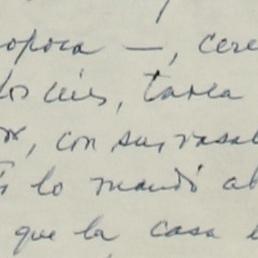 opoca —, cere
dos leís, tarea
, con sus vasal
s lo mandó ab
que la casa